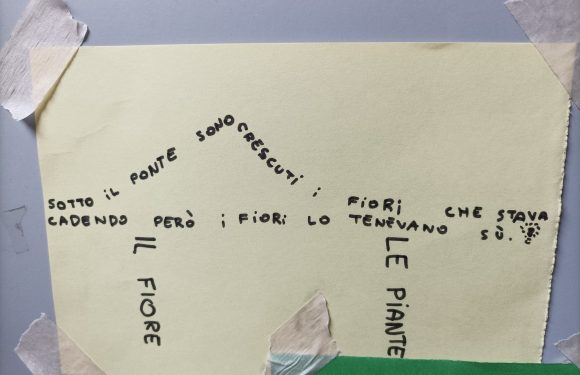 SOTTO iL PONTE SONO CRESCUTi i FiORi CHE STAVA
CADENDO PERÒ i FiORi LO TENEVANO SÙ.
IL FIORE
LE PIANTE